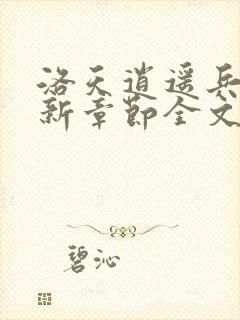 洛天逍遥兵
新章节全文
碧沁